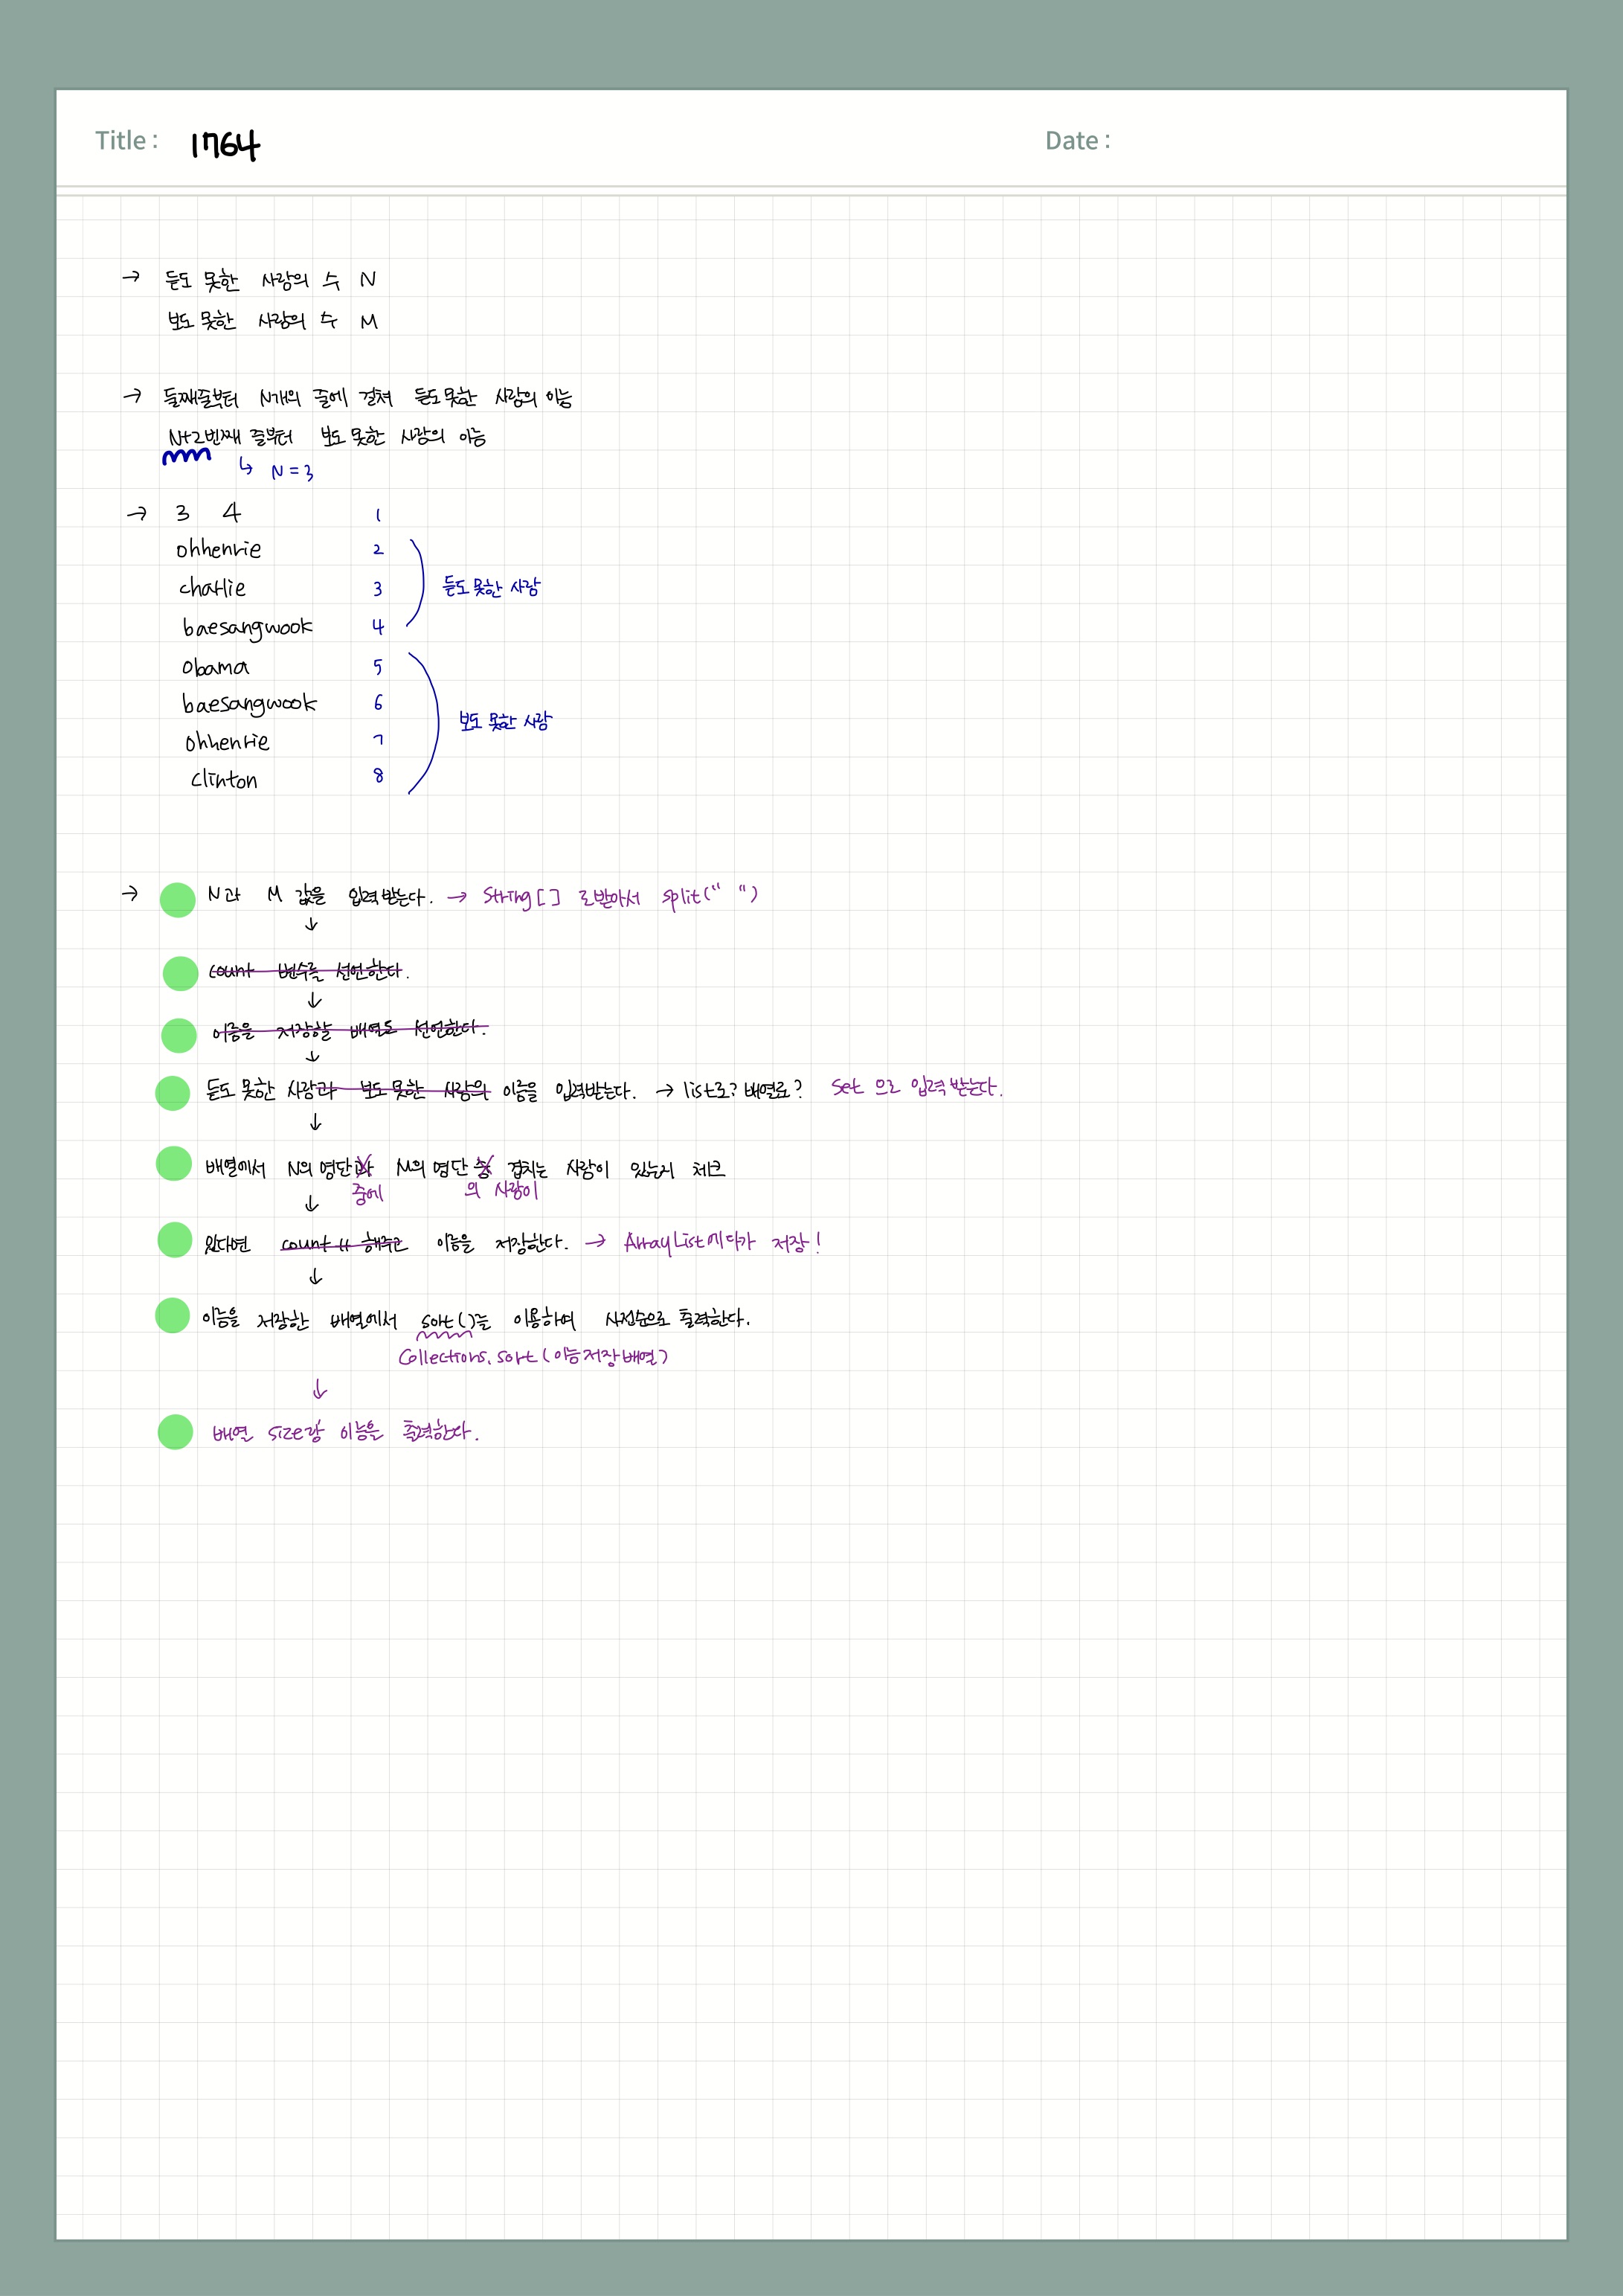 Title : 1764
Date :
→ 듣도 못한 사람의 수 N
보도 못한 사람의 수 M
→ 둘째줄부터 N개의 줄에 걸쳐 듣도 못한 사람의 이름
N+2번째 줄부터 보도 못한 사람의 이름
↳ N = 3
→ 3 4 1
ohhenrie 2
charlie 3
듣도 못한 사람
baesangwook 4
obama 5
baesangwook 6
보도 못한 사람
ohhenrie 7
clinton 8
→ N과 M 값을 입력받는다. → String[] 로 받아서 split(" ")
↓
count 변수를 선언한다.
↓
이름을 저장할 배열도 선언한다.
↓
듣도 못한 사람과 보도 못한 사람의 이름을 입력받는다. → list로? 배열로? Set 으로 입력 받는다.
↓
배열에서 N의 명단과 M의 명단 중 겹치는 사람이 있는지 체크
중에 의 사람이
↓
있다면 count ++ 해주고 이름을 저장한다. → ArrayList에다가 저장!
↓
이름을 저장한 배열에서 sort()를 이용하여 사전순으로 출력한다.
Collections.sort(이름저장배열)
↓
배열 size랑 이름을 출력한다.